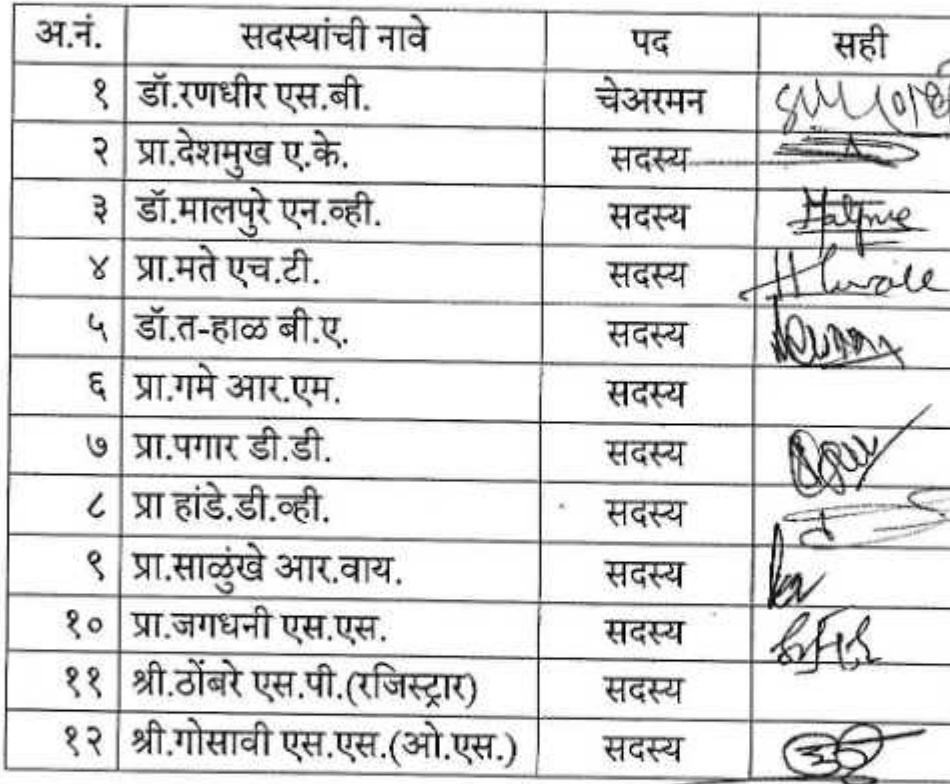 अ.नं. सदस्यांची नावे पद सही
१ डॉ.रणधीर एस.बी. चेअरमन
२ प्रा.देशमुख ए.के. सदस्य
३ डॉ.मालपुरे एन.व्ही. सदस्य
४ प्रा.मते एच.टी. सदस्य
५ डॉ.त-हाळ बी.ए. सदस्य
६ प्रा.गमे आर.एम. सदस्य
७ प्रा.पगार डी.डी. सदस्य
८ प्रा हांडे.डी.व्ही. सदस्य
९ प्रा.साळुंखे आर.वाय. सदस्य
१० प्रा.जगधनी एस.एस. सदस्य
११ श्री.ठोंबरे एस.पी.(रजिस्ट्रार) सदस्य
१२ श्री.गोसावी एस.एस.(ओ.एस.) सदस्य